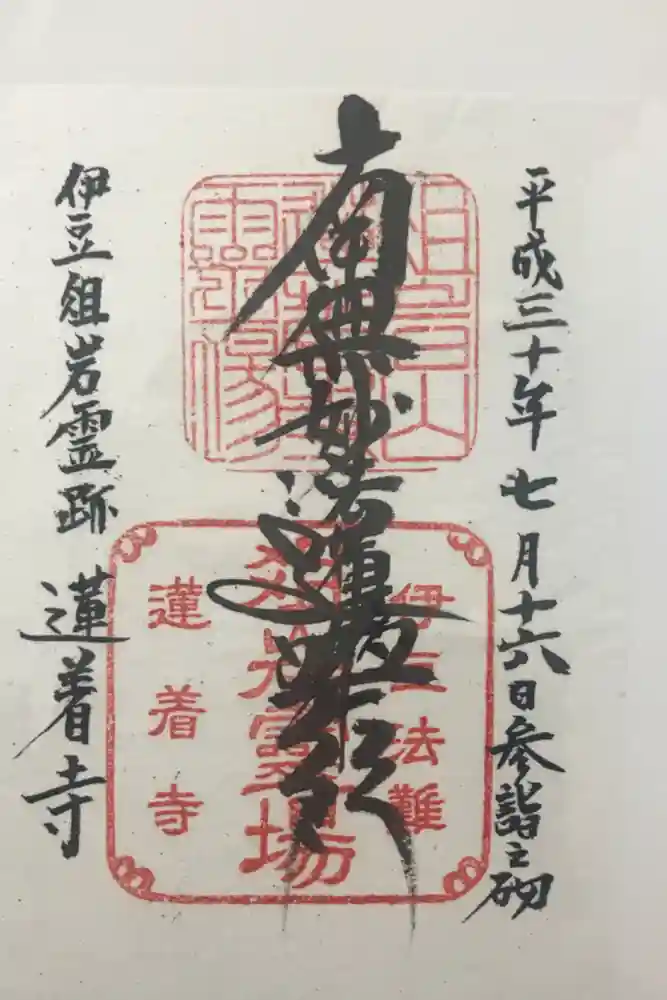 平成三十年七月十六日参詣之砌
南無妙法蓮華経
伊豆法難
俎岩霊場
蓮着寺
伊豆俎岩霊跡 蓮着寺